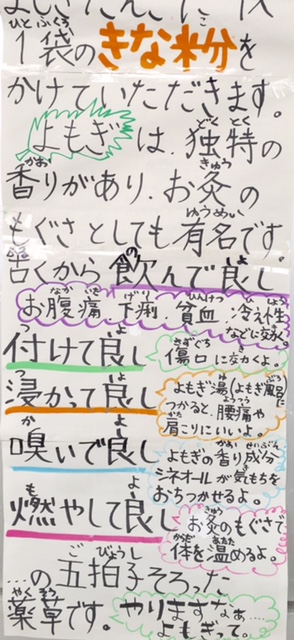 1袋のきな粉を
かけていただきます。
よもぎは、独特の
香りがあり、お灸の
もぐさとしても有名です。
古くから飲んで良し
お腹痛、下痢、貧血、冷え性
などに効く。
付けて良し
傷口に効くよ。
浸かって良し
よもぎ湯(よもぎ風呂)に
つかると、腰痛や
肩こりにいいよ。
嗅いで良し
よもぎの香り成分
シネオールが気もちを
おちつかせるよ。
燃やして良し
お灸のもぐさで
体を温めるよ。
…の五拍子そろった
薬草です。
やりますなぁ…
よもぎって。